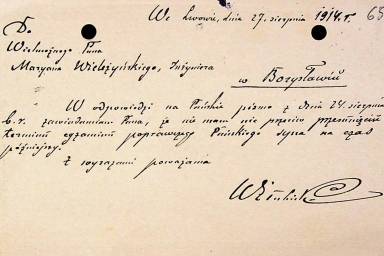 We Lwowie, dnia 27. sierpnia 1914. r. 65
Do
Wielmożnego Pana
Maryana Wieleżyńskiego, Inżyniera
w Borysławiu
W odpowiedzi na Pańskie pismo z dnia 24. sierpnia
b. r. zawiadamiam Pana, że nie mam nic przeciw przesunięciu
terminu egzaminu poprawczego Pańskiego syna na czas
późniejszy.
Z wyrazami poważania